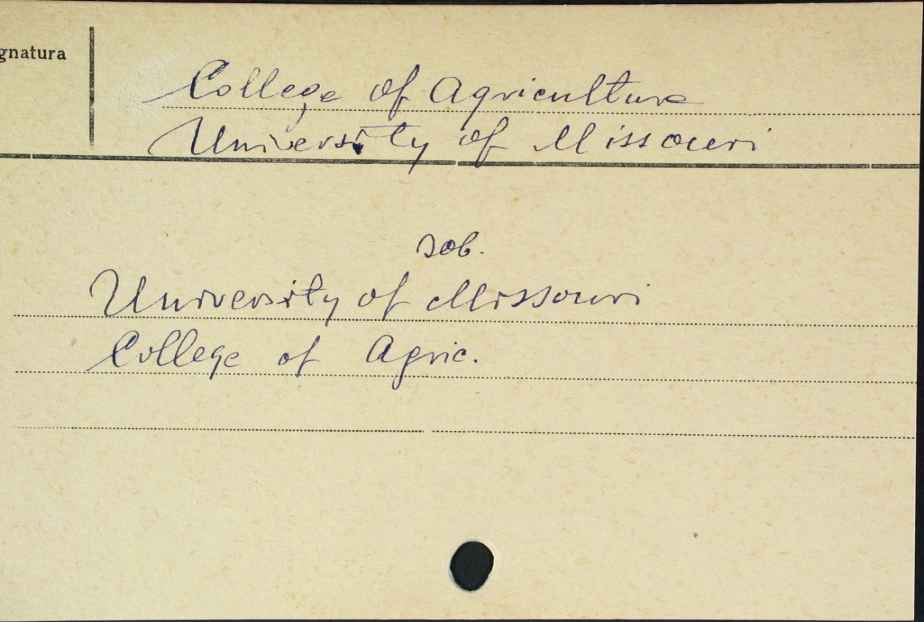 gnatura
College of Agriculture
University of Missouri
zob.
University of Missouri
College of Agric.